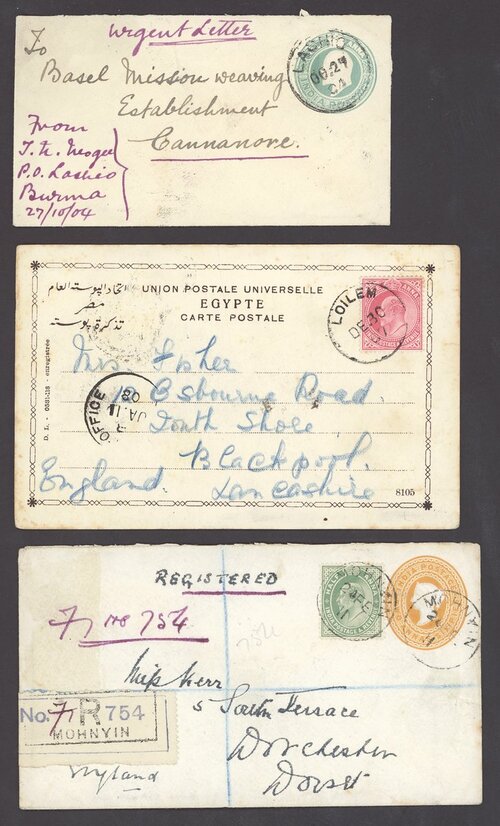 Urgent Letter
To
Basel Mission weaving
Establishment
Cannanore.
From
P.O. Lashio
Burma
27/10/04
LASHIO
OC.27
04
اتحاد البوستة العام
مصر
تذكرة بوستة
UNION POSTALE UNIVERSELLE
EGYPTE
CARTE POSTALE
LOILEM
DE.30
D. L. - enregistrée
OFFICE
JA.11
08
Road.
South Shore
Blackpool.
England. Lancashire
8105
REGISTERED
754
754
INDIA POSTAGE
HALF
MOHNYIN
Miss Kerr
5 South Terrace
Dorchester
Dorset
England
No. 71 R 754
MOHNYIN